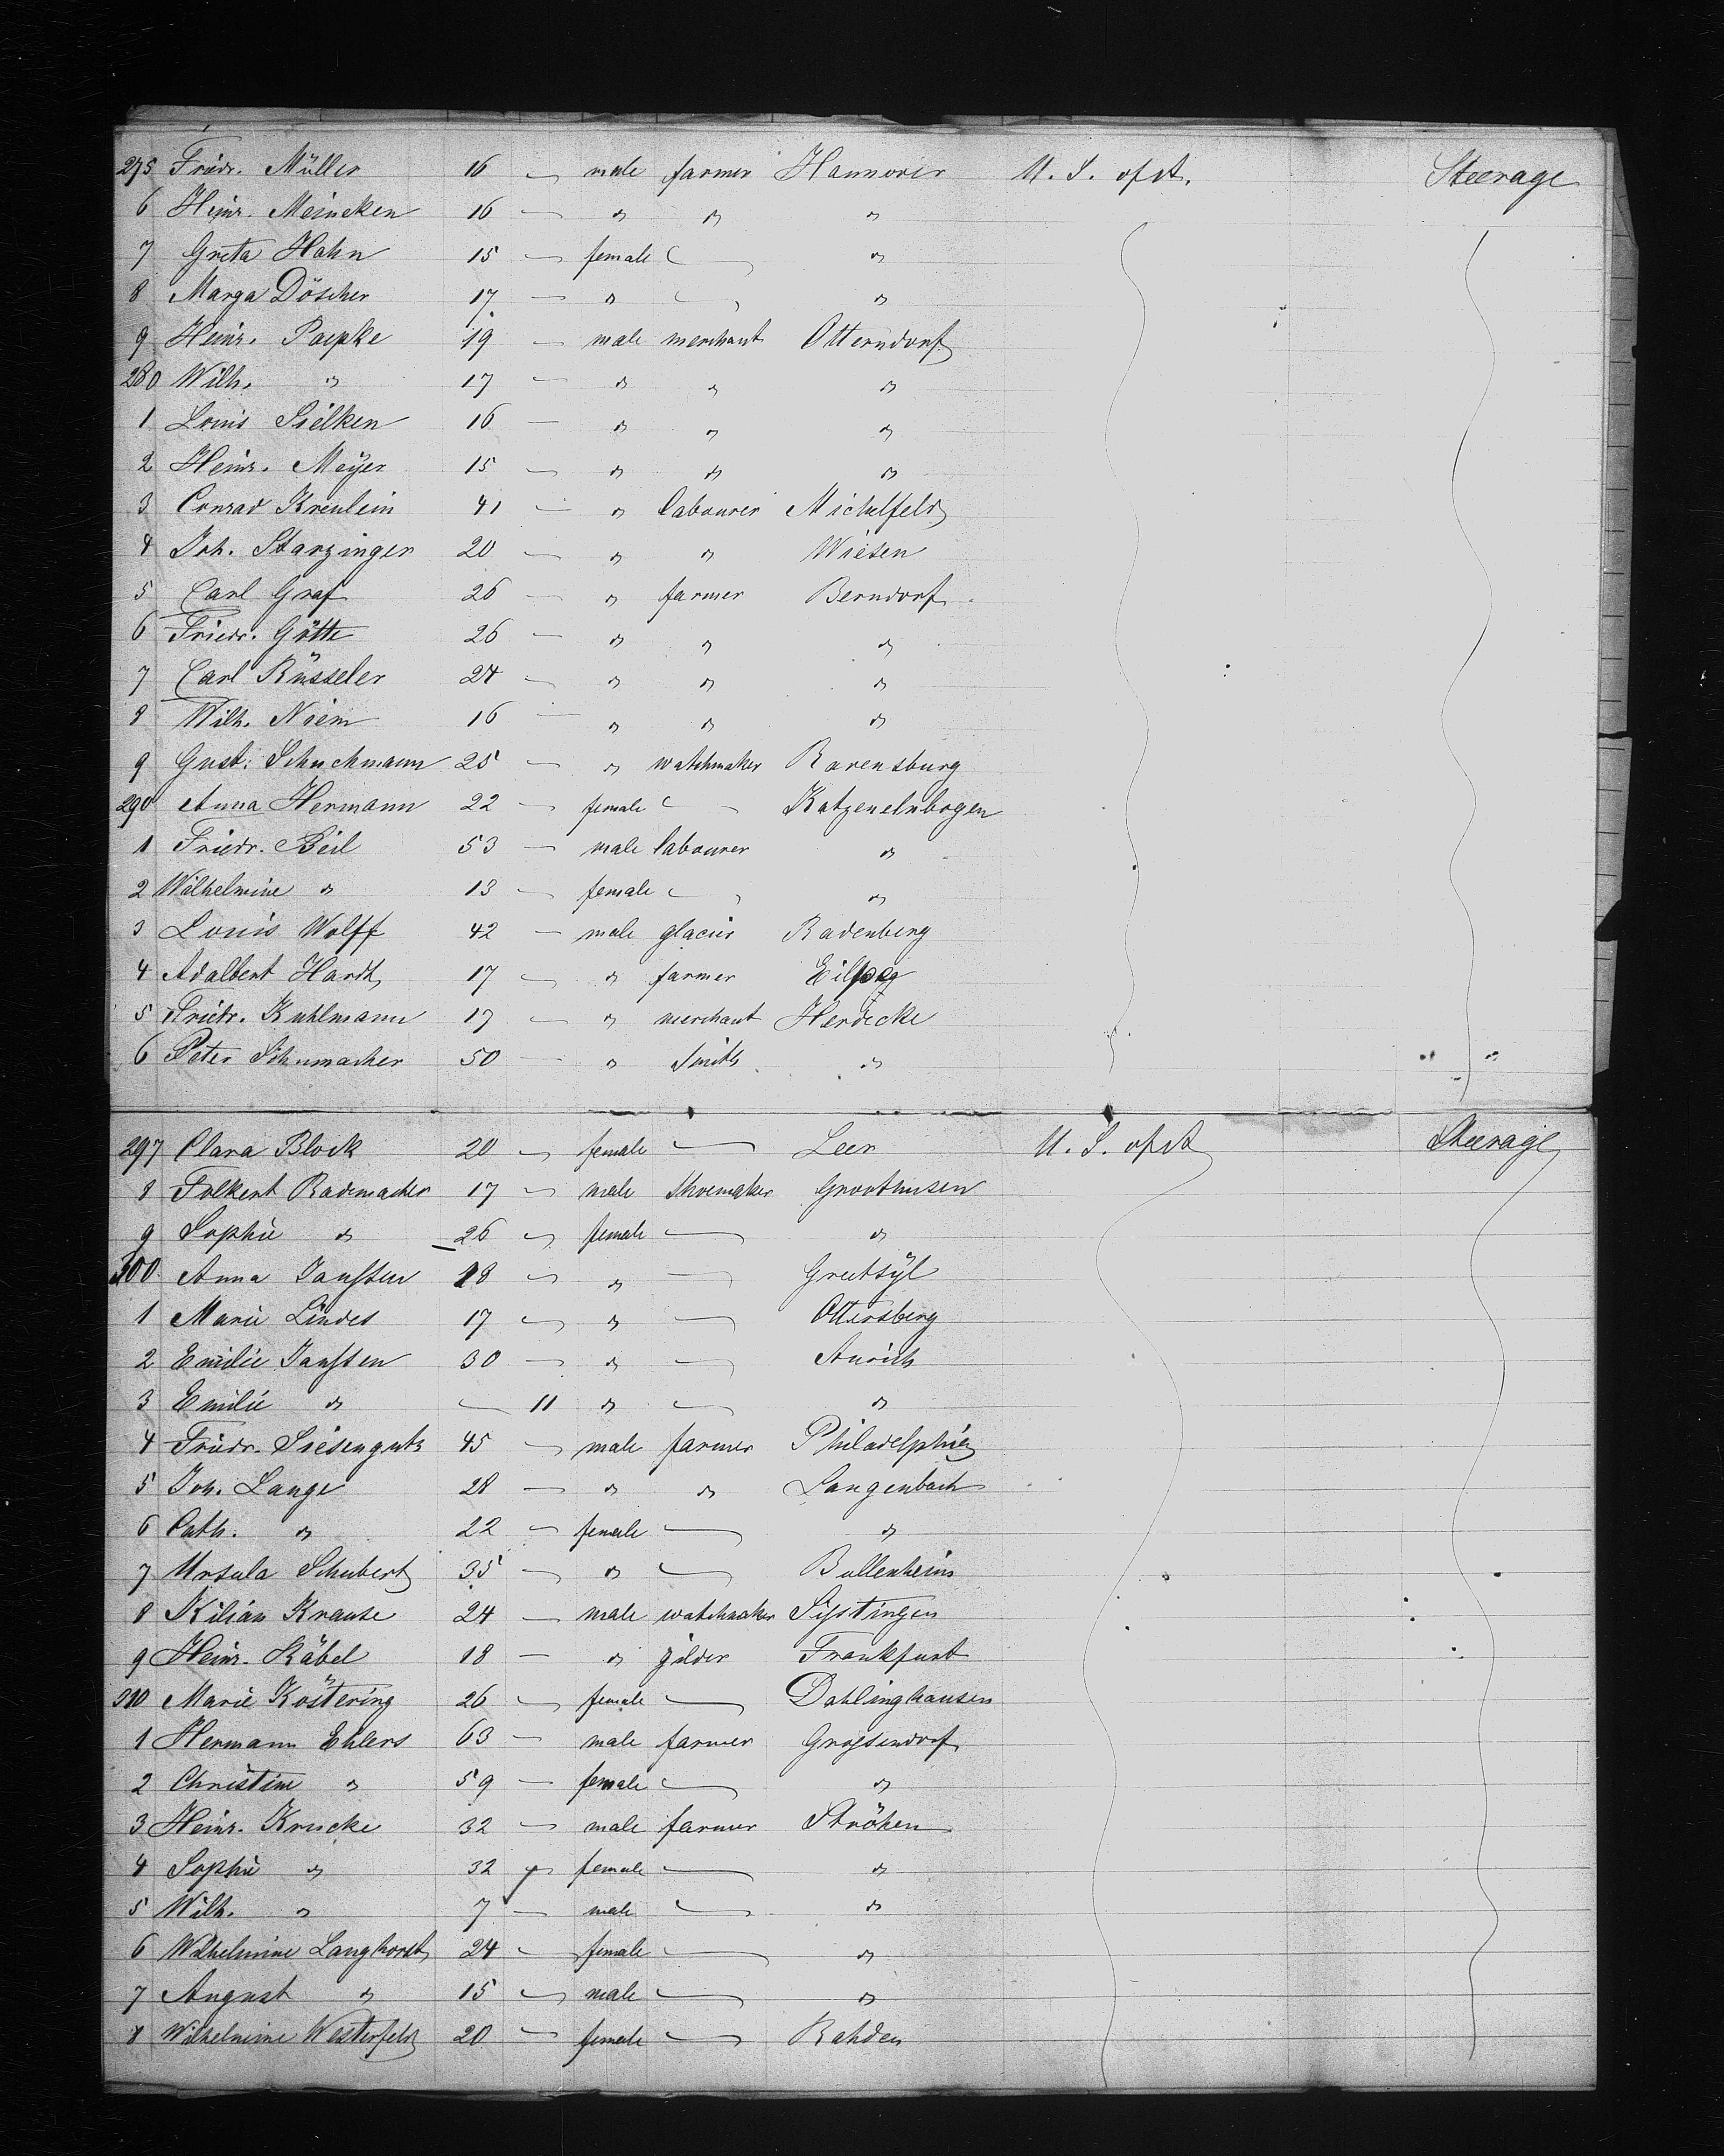 275 Friedr. Müller 16 — male farmer Hannover U. S. of A. Steerage
6 Heinr. Meincken 16 — " " "
7 Greta Hahn 15 — female — "
8 Marga Döscher 17 — " — "
9 Heinr. Paepke 19 — male merchant Otterndorf
280 Wilh. " 17 — " " "
1 Louis Sielken 16 — " " "
2 Heinr. Meÿer 15 — " " "
3 Conrad Kreulein 41 — " labourer Michelfeld
4 Joh. Starzinger 20 — " " Wiesen
5 Carl Graf 26 — " farmer Berndorf
6 Friedr. Götte 26 — " " "
7 Carl Büsseler 24 — " " "
8 Wilh. Niem 16 — " " "
9 Gust. Schuchmann 25 — " watchmaker Ravensburg
290 Anna Hermann 22 — female — Katzenelnbogen
1 Friedr. Beil 53 — male labourer "
2 Wilhelmine " 13 — female — "
3 Louis Wolff 42 — male glacier Radenberg
4 Adalbert Hardt 17 — " farmer
5 Friedr. Kuhlmann 17 — " merchant Herdecke
6 Peter Schumacher 50 — " Smith "
297 Clara Block 20 — female — Leer U. S. of A Steerage
8 Folkert Rademacher 17 — male Shoemaker Groothusen
9 Sophie " 26 — female — "
300 Anna Janssen 18 — " — Greetsÿl
1 Marie Lindes 17 — " — Ottersberg
2 Emilie Janssen 30 — " — Aurich
3 Emilie " — 11 " — "
4 Friedr. Siesenguth 45 — male farmer Philadelphia
5 Joh. Lange 28 — " " Langenbach
6 Cath. " 22 — female — "
7 Ursula Schubert 35 — " — Bullenheim
8 Kilian Krause 24 — male watchmaker
9 Heinr. Käbel 18 — " gilder Frankfurt
310 Marie Köstering 26 — female — Dahlinghausen
1 Hermann Ehlers 63 — male farmer Grossendorf
2 Christine " 59 — female — "
3 Heinr. Krucke 32 — male farmer Ströhen
4 Sophie " 32 — female — "
5 Wilh. " 7 — male — "
6 Wilhelmine Langhorst 24 — female — "
7 August " 15 — male — "
8 Wilhelmine Westerfeld 20 — female — Rahden